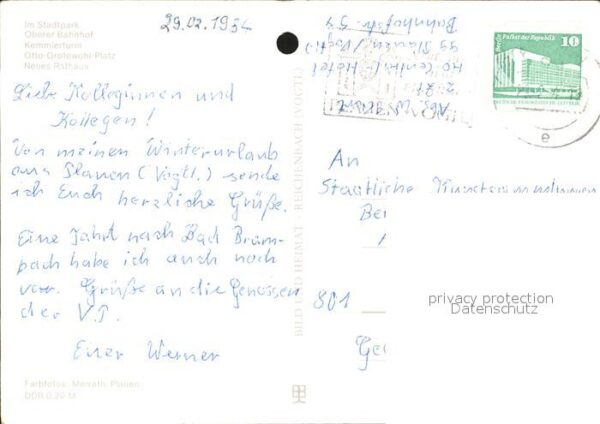 Im Stadtpark
Oberer Bahnhof
Kemmlerturm
Otto-Grotewohl-Platz
Neues Rathaus
29.02.1984
Liebe Kolleginnen und
Kollegen!
Von meinen Winterurlaub
aus Plauen (Vogtl.) sende
ich Euch herzliche Grüße.
Eine Fahrt nach Bad Bram-
bach habe ich auch noch
vor. Grüße an die Genossen
der VP.
Euer Werner
Farbfotos: Meinath, Plauen
DDR 0,20 M
BILD UND HEIMAT REICHENBACH (VOGTL)
Abs. W.
Hotel
99 Plauen/Vogtl.
Bahnhofstr.
PLAUEN
Berlin, Palast der Republik
10
DEUTSCHE DEMOKRATISCHE REPUBLIK
e
An
Staatliche Kunstsammlungen
801
privacy protection
Datenschutz